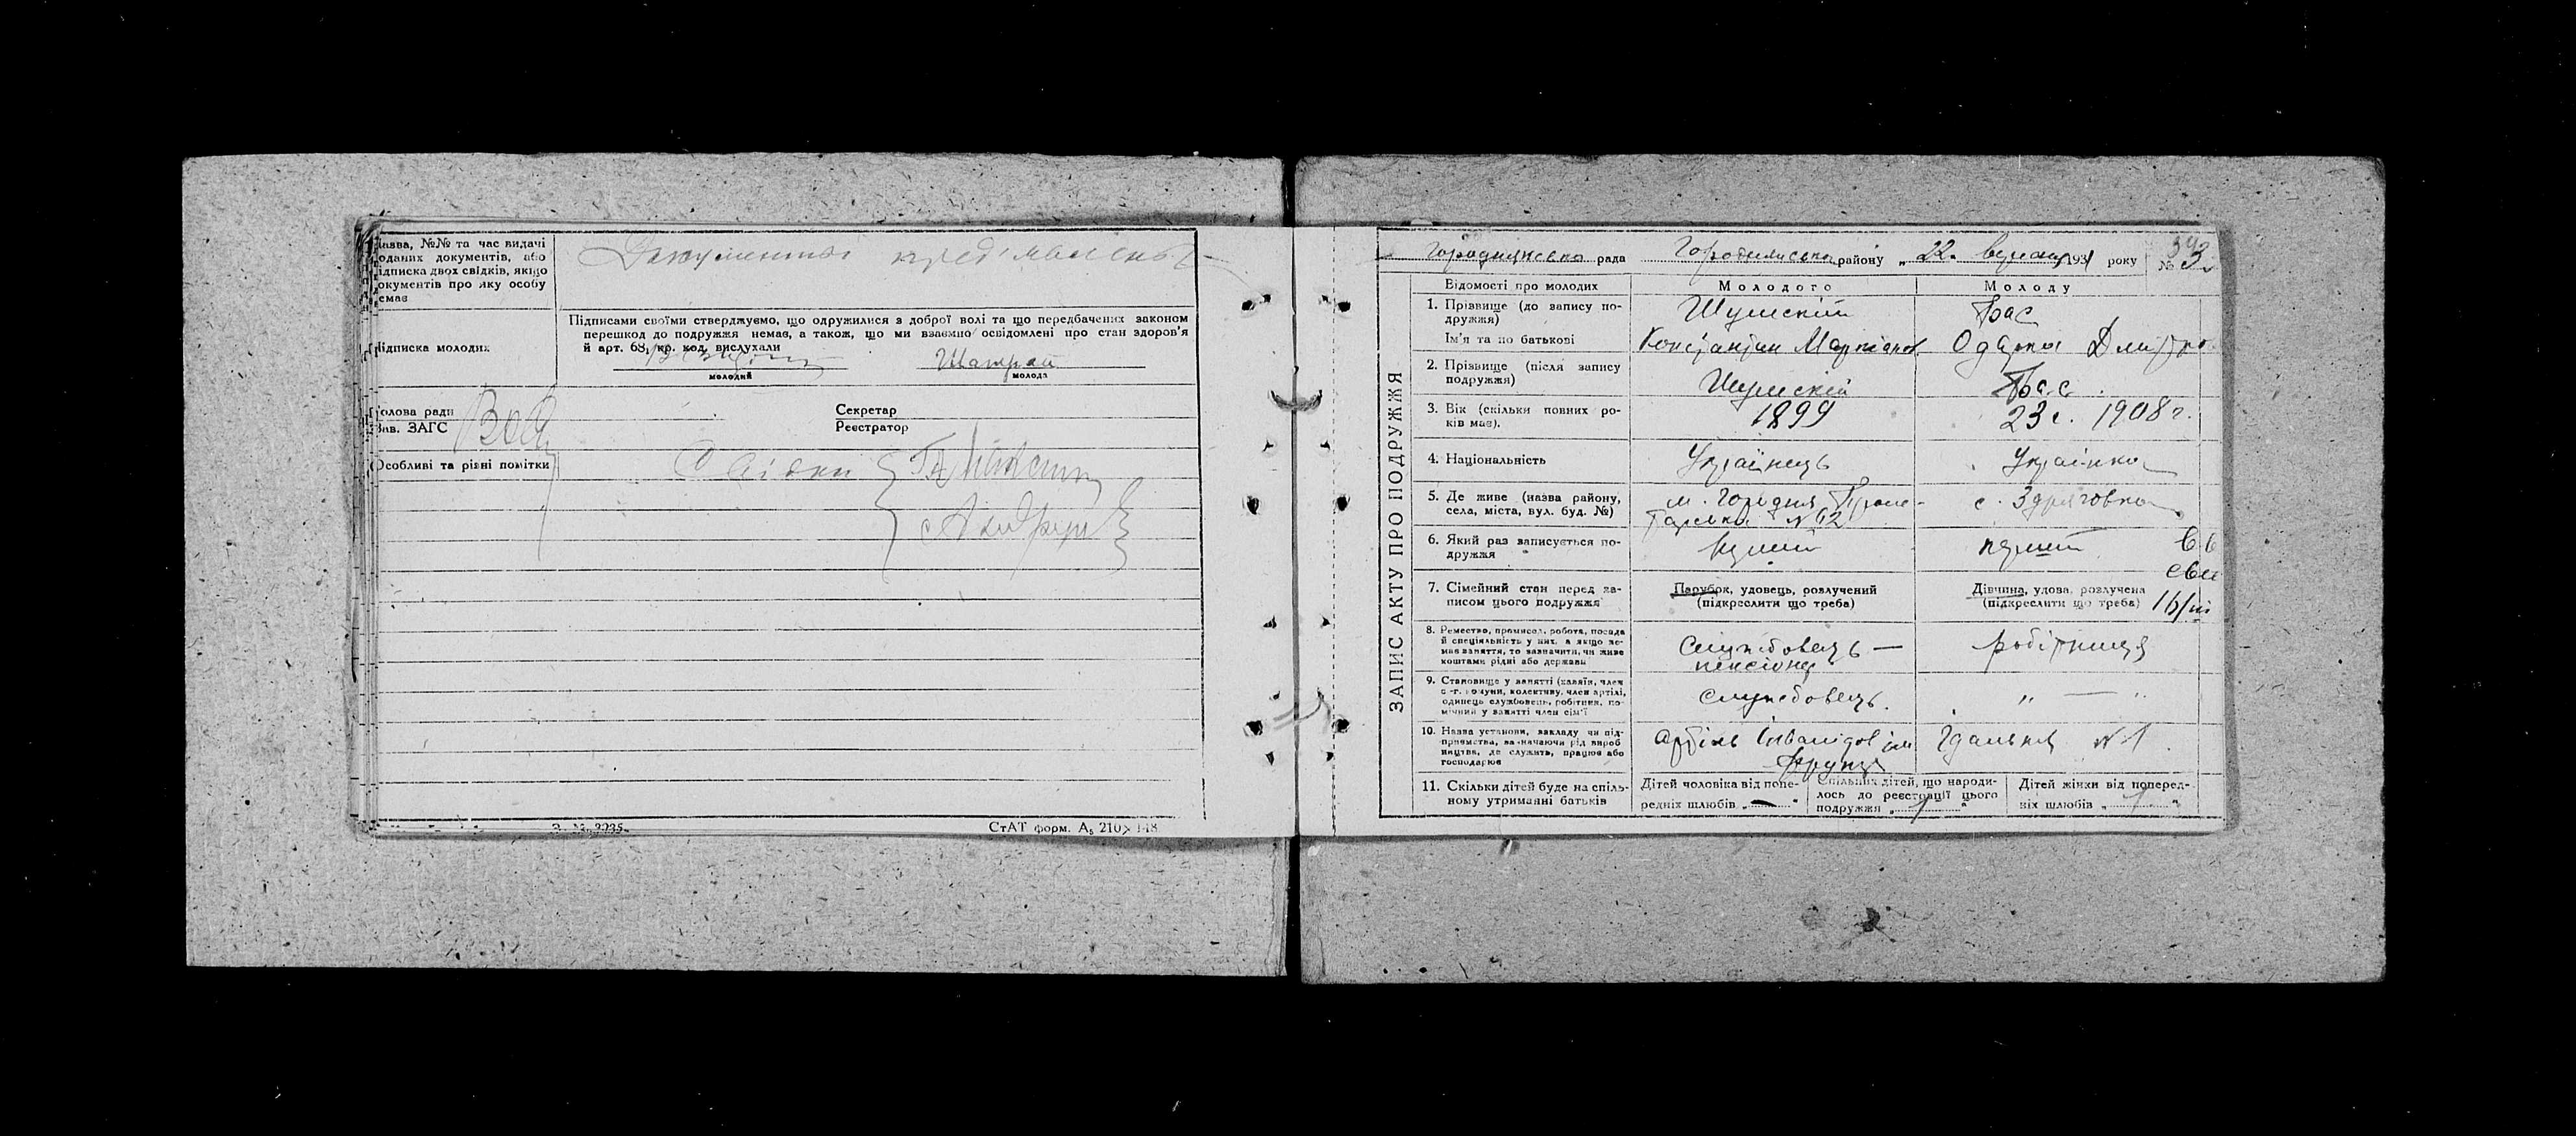 Назва, №№ та час видачі
поданих документів, або
підписка двох свідків, якщо
документів про яку особу
немає
Документа
Підписка молодих
Підписами своїми стверджуємо, що одружилися з доброї волі та що передбачених законом
перешкод до подружжя немає, а також, що ми взаємно освідомлені про стан здоров'я
й арт. 68, кр. код. вислухали
молодий
молода
Голова ради
Зав. ЗАГС
Секретар
Реєстратор
Особливі та різні помітки
Свідки
СтАТ форм. А5 210×148
рада
району „22. 1931 року №
ЗАПИС АКТУ ПРО ПОДРУЖЖЯ
Відомості про молодих
Молодого
Молоду
1. Прізвище (до запису по-
дружжя)
Шумский
Бас
Ім'я та по батькові
Константин Маркіянов
Одарка Дмитро
2. Прізвище (після запису
подружжя)
Шумский
Бас.
3. Вік (скільки повних ро-
ків має).
1899
23 г. 1908 г.
4. Національність
Українець
Українка
5. Де живе (назва району,
села, міста, вул. буд. №)
м. Городня Проле-
тарська №12
с. Здряговка
6. Який раз записується по-
дружжя
перший
7. Сімейний стан перед за-
писом цього подружжя
Парубок, удовець, розлучений
(підкреслити що треба)
Дівчина, удова, розлучена
(підкреслити що треба)
8. Ремество, промисел, робота, посада
й спеціяльність у них, а якщо не-
має заняття, то зазначити, чи живе
коштами рідні або держави
Службовець —
пенсіонер
робітниця
9. Становище у занятті (хазяїн, член
с.-г. комуни, колективу, член артілі,
одинець службовець, робітник, по-
мічний у занятті член сім'ї
службовець.
„ — "
10. Назва установи, закладу чи під-
приємства, зазначаючи рід вироб
ництва, де служить, працює або
господарює
Артіль Інвалідов ім
Фрунзе
Їдальня №1
11. Скільки дітей буде на спіль-
ному утриманні батьків
Дітей чоловіка від попе-
редніх шлюбів „ — "
Спільних дітей, що народи-
лось до реєстрації цього
подружжя „ 1 "
Дітей жінки від поперед-
ніх шлюбів „ 1 "